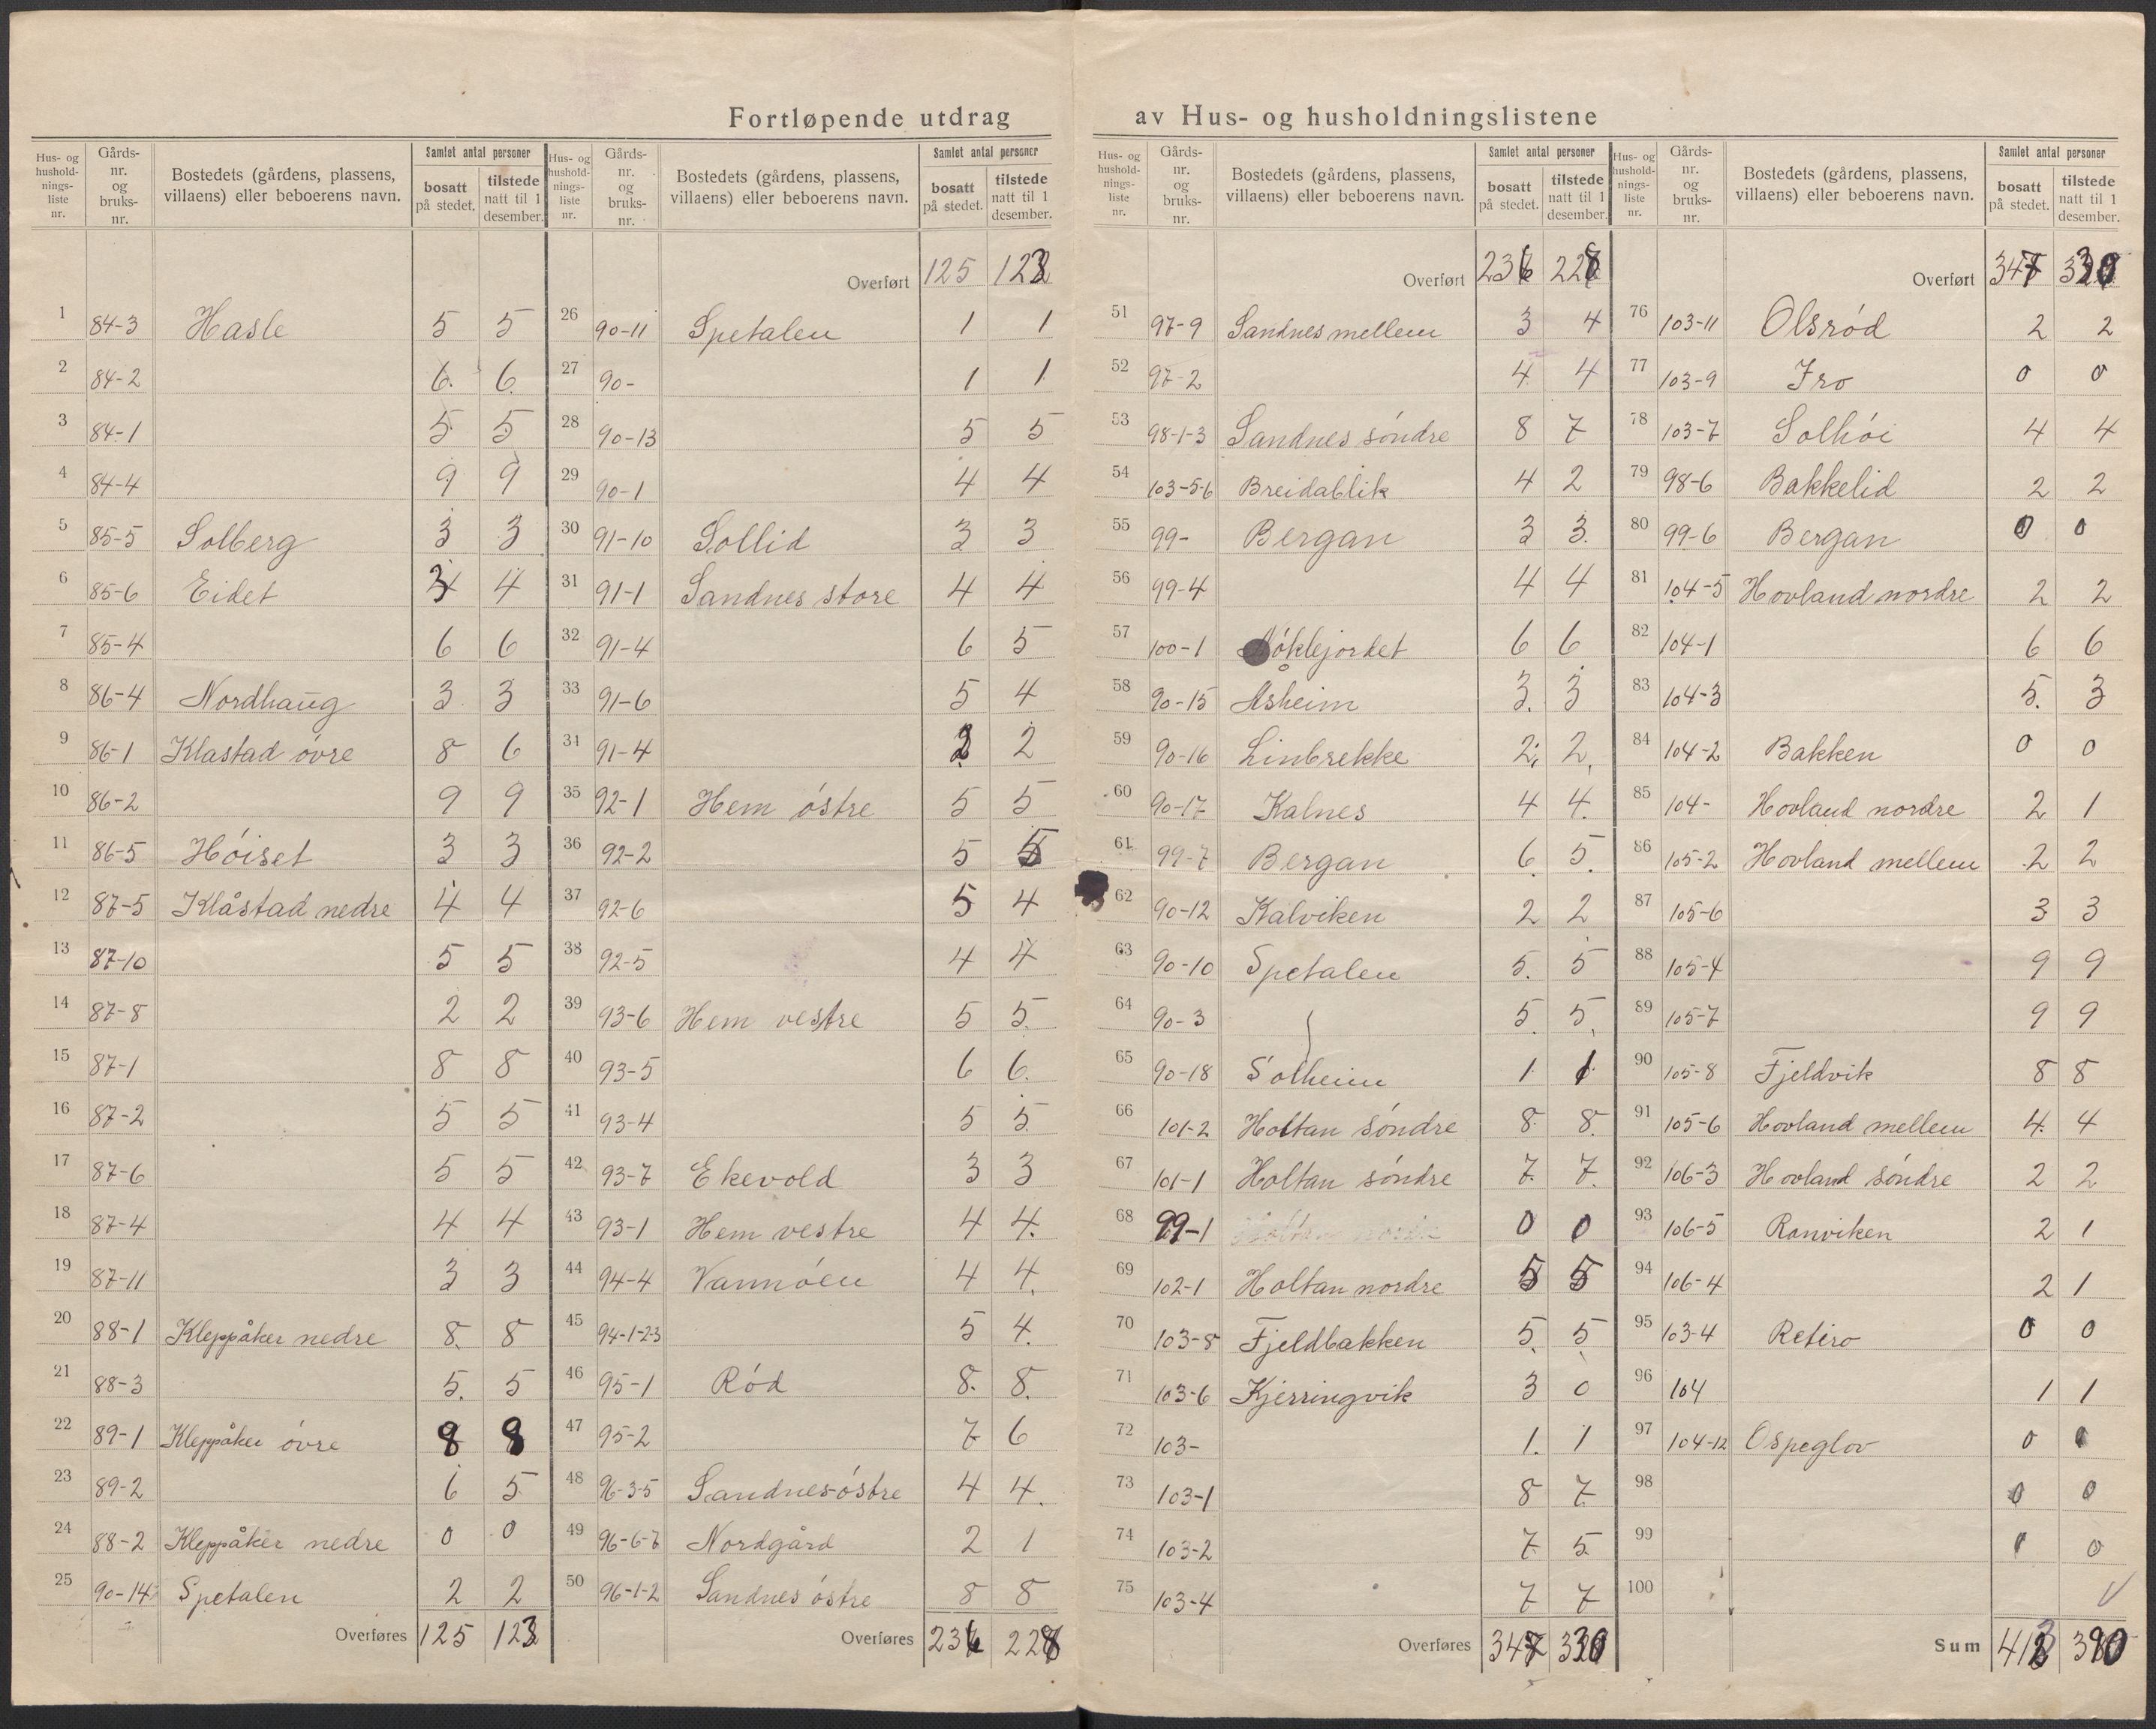 Fortløpende utdrag av Hus- og husholdningslistene
Hus- og husholdnings-liste nr. Gårds-nr. og bruks-nr. Bostedets (gårdens, plassens, villaens) eller beboerens navn. Samlet antal personer bosatt på stedet. tilstede natt til 1 desember.
1 84-3 Hasle 5 5
2 84-2 6 6
3 84-1 5 5
4 84-4 9 9
5 85-5 Solberg 3 3
6 85-6 Eidet 4
7 85-4 6 6
8 86-4 Nordhaug 3 3
9 86-1 Klastad óvre 8 6
10 86-2 9 9
11 86-5 Hóiset 3 3
12 87-5 Klåstad nedre 4 4
13 87-10 5 5
14 87-8 2 2
15 87-1 8 8
16 87-2 5 5
17 87-6 5 5
18 87-4 4 4
19 87-11 3 3
20 88-1 Kleppåker nedre 8 8
21 88-3 5 5
22 89-1 Kleppåker óvre 8 8
23 89-2 6 5
24 88-2 Kleppåker nedre 0 0
25 90-14 Spetalen 2 2
Overføres 125 123
Hus- og husholdnings-liste nr. Gårds-nr. og bruks-nr. Bostedets (gårdens, plassens, villaens) eller beboerens navn. Samlet antal personer bosatt på stedet. tilstede natt til 1 desember.
Overført 125 123
26 90-11 Spetalen 1 1
27 90- 1 1
28 90-13 5 5
29 90-1 4 4
30 91-10 Sollid 3 3
31 91-1 Sandnes store 4 4
32 91-4 6 5
33 91-6 5 4
34 91-4 2 2
35 92-1 Hem óstre 5 5
36 92-2 5 5
37 92-6 5 4
38 92-5 4 4
39 93-6 Hem vestre 5 5
40 93-5 6 6
41 93-4 5 5
42 93-7 Ekevold 3 3
43 93-1 Hem vestre 4 4
44 94-4 Vannóen 4 4
45 94-1-2-3 5 4
46 95-1 Ród 8 8
47 95-2 7 6
48 96-3-5 Sandnes óstre 4 4
49 96-6-7 Nordgård 2 1
50 96-1-2 Sandnes óstre 8 8
Overføres 236 228
Hus- og husholdnings-liste nr. Gårds-nr. og bruks-nr. Bostedets (gårdens, plassens, villaens) eller beboerens navn. Samlet antal personer bosatt på stedet. tilstede natt til 1 desember.
Overført 236 228
51 97-9 Sandnes mellem 3 4
52 97-2 4 4
53 98-1-3 Sandnes sóndre 8 7
54 103-5-6 Breidablik 4 2
55 99- Bergan 3 3
56 99-4 4 4
57 100-1 Nóklejordet 6 6
58 90-15 Åsheim 3 3
59 90-16 Linbrekke 2 2
60 90-17 Kalnes 4 4
61 99-7 Bergan 6 5
62 90-12 Kalviken 2 2
63 90-10 Spetalen 5 5
64 90-3 5 5
65 90-18 Solheim 1 1
66 101-2 Holtan sóndre 8 8
67 101-1 Holtan sóndre 7 7
68 99-1 0 0
69 102-1 Holtan nordre 5 5
70 103-8 Fjeldbakken 5 5
71 103-6 Kjerringvik 3 0
72 103- 1 1
73 103-1 8 7
74 103-2 7 5
75 103-4 7 7
Overføres 347 330
Hus- og husholdnings-liste nr. Gårds-nr. og bruks-nr. Bostedets (gårdens, plassens, villaens) eller beboerens navn. Samlet antal personer bosatt på stedet. tilstede natt til 1 desember.
Overført 347 330
76 103-11 Olsród 2 2
77 103-9 Fro 0 0
78 103-7 Solhói 4 4
79 98-6 Bakkelid 2 2
80 99-6 Bergan 0 0
81 104-5 Hovland nordre 2 2
82 104-1 6 6
83 104-3 5 3
84 104-2 Bakken 0 0
85 104- Hovland nordre 2 1
86 105-2 Hovland mellem 2 2
87 105-6 3 3
88 105-4 9 9
89 105-7 9 9
90 105-8 Fjeldvik 8 8
91 105-6 Hovland mellem 4 4
92 106-3 Hovland sóndre 2 2
93 106-5 Ranviken 2 1
94 106-4 2 1
95 103-4 Retiro 0 0
96 104 1 1
97 104-12 Ospeglov 0 0
98 0 0
99 0
100
Sum 390